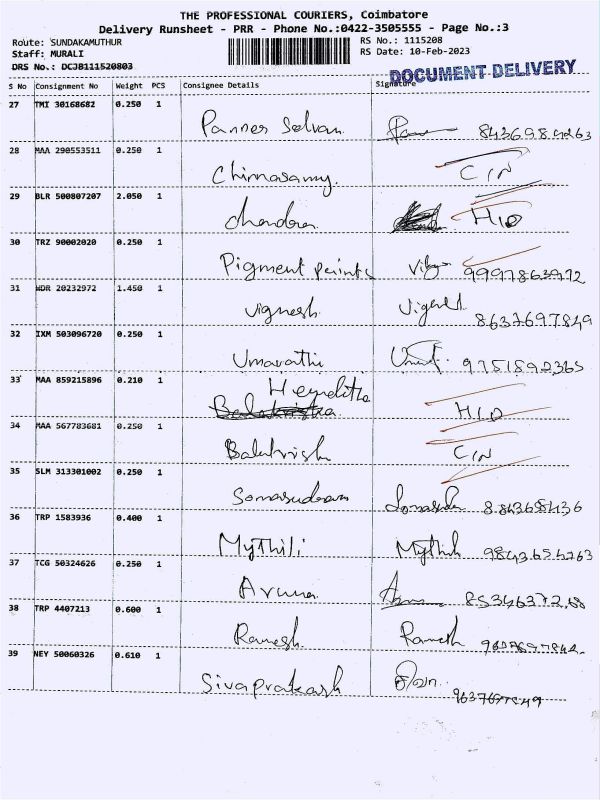 THE PROFESSIONAL COURIERS, Coimbatore
Delivery Runsheet - PRR - Phone No.:0422-3505555 - Page No.:3
Route: SUNDAKAMUTHUR RS No.: 1115208
Staff: MURALI RS Date: 10-Feb-2023
DRS No.: DCJB111520803
DOCUMENT DELIVERY
S No Consignment No Weight PCS Consignee Details Signature
27 TMI 30168682 0.250 1
Panner Selvan
28 MAA 290553511 0.250 1
Chinnasamy CIN
29 BLR 500807207 2.050 1
Chandra HID
30 TRZ 90002020 0.250 1
Pigment paints 99997863972
31 WDR 20232972 1.450 1
Vignesh Vignesh 8637697849
32 IXM 503096720 0.250 1
Umavathi 9751592365
33 MAA 859215896 0.210 1
HID
34 MAA 567783681 0.250 1
Balakrish CIN
35 SLM 313301002 0.250 1
36 TRP 1583936 0.400 1
Mythili Mythili
37 TCG 50324626 0.250 1
Aruna
38 TRP 4407213 0.600 1
Ramesh Ramesh
39 NEY 50060326 0.610 1
Sivaprakash